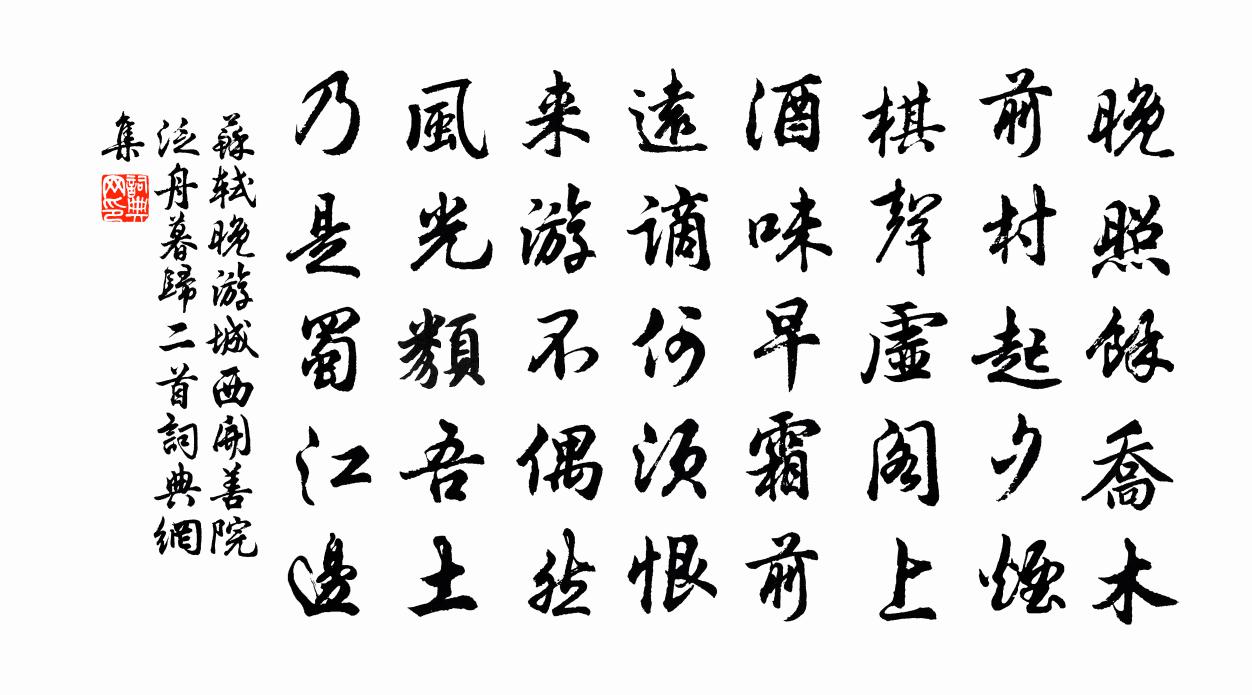 晚照餘喬木
前村起夕煙
棋聲虛閣上
酒味早霜前
遠謫何須恨
来游不偶然
風光類吾土
乃是蜀江邊
蘇軾晚游城西開善院
泛舟暮歸二首詞典網
集
詞典
网印